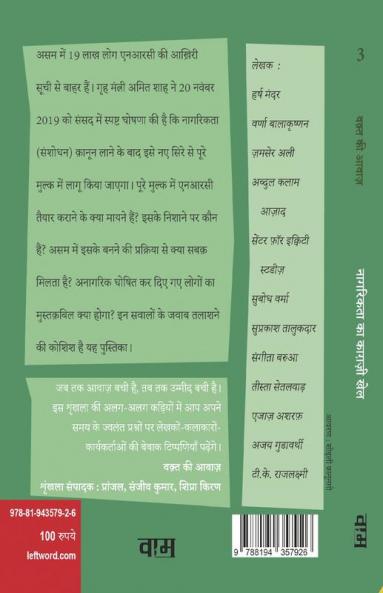 असम में 19 लाख लोग एनआरसी की आख़िरी
सूची से बाहर हैं। गृह मंत्री अमित शाह ने 20 नवंबर
2019 को संसद में स्पष्ट घोषणा की है कि नागरिकता
(संशोधन) क़ानून लाने के बाद इसे नए सिरे से पूरे
मुल्क में लागू किया जाएगा। पूरे मुल्क में एनआरसी
तैयार कराने के क्या मायने हैं? इसके निशाने पर कौन
है? असम में इसके बनने की प्रक्रिया से क्या सबक़
मिलता है? अनागरिक घोषित कर दिए गए लोगों का
मुस्तक़बिल क्या होगा? इन सवालों के जवाब तलाशने
की कोशिश है यह पुस्तिका।
जब तक आवाज़ बची है, तब तक उम्मीद बची है।
इस शृंखला की अलग-अलग कड़ियों में आप अपने
समय के ज्वलंत प्रश्नों पर लेखकों-कलाकारों-
कार्यकर्ताओं की बेबाक टिप्पणियाँ पढ़ेंगे।
वक़्त की आवाज़
शृंखला संपादक : प्रांजल, संजीव कुमार, शिप्रा किरण
978-81-943579-2-6
100 रुपये
leftword.com
वाम
लेखक :
हर्ष मंदर
वर्णा बालाकृष्णन
ज़मसेर अली
अब्दुल कलाम
आज़ाद
सेंटर फ़ॉर इक्विटी
स्टडीज़
सुबोध वर्मा
सुप्रकाश तालुकदार
संगीता बरुआ
तीस्ता सेतलवाड़
एजाज़ अशरफ़
अजय गुडावर्थी
टी.के. राजलक्ष्मी
आवरण :
9 788194 357926
3
वक़्त की आवाज़
नागरिकता का काग़ज़ी खेल
वाम